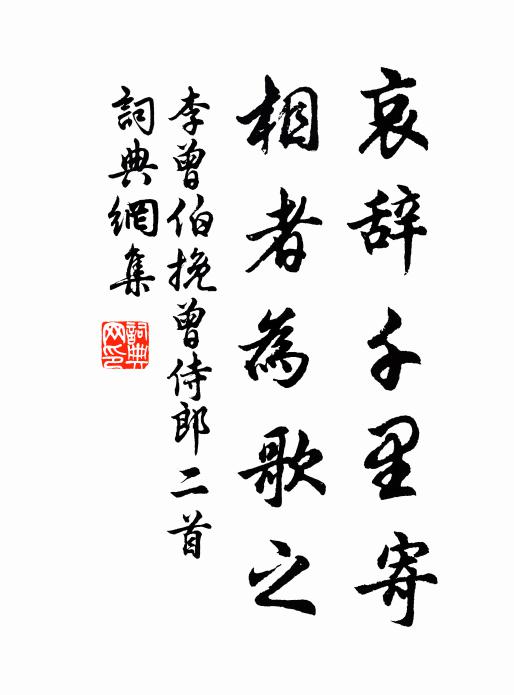 哀辞千里寄
相者為歌之
李曾伯挽曾侍郎二首
詞典網集
詞典网印